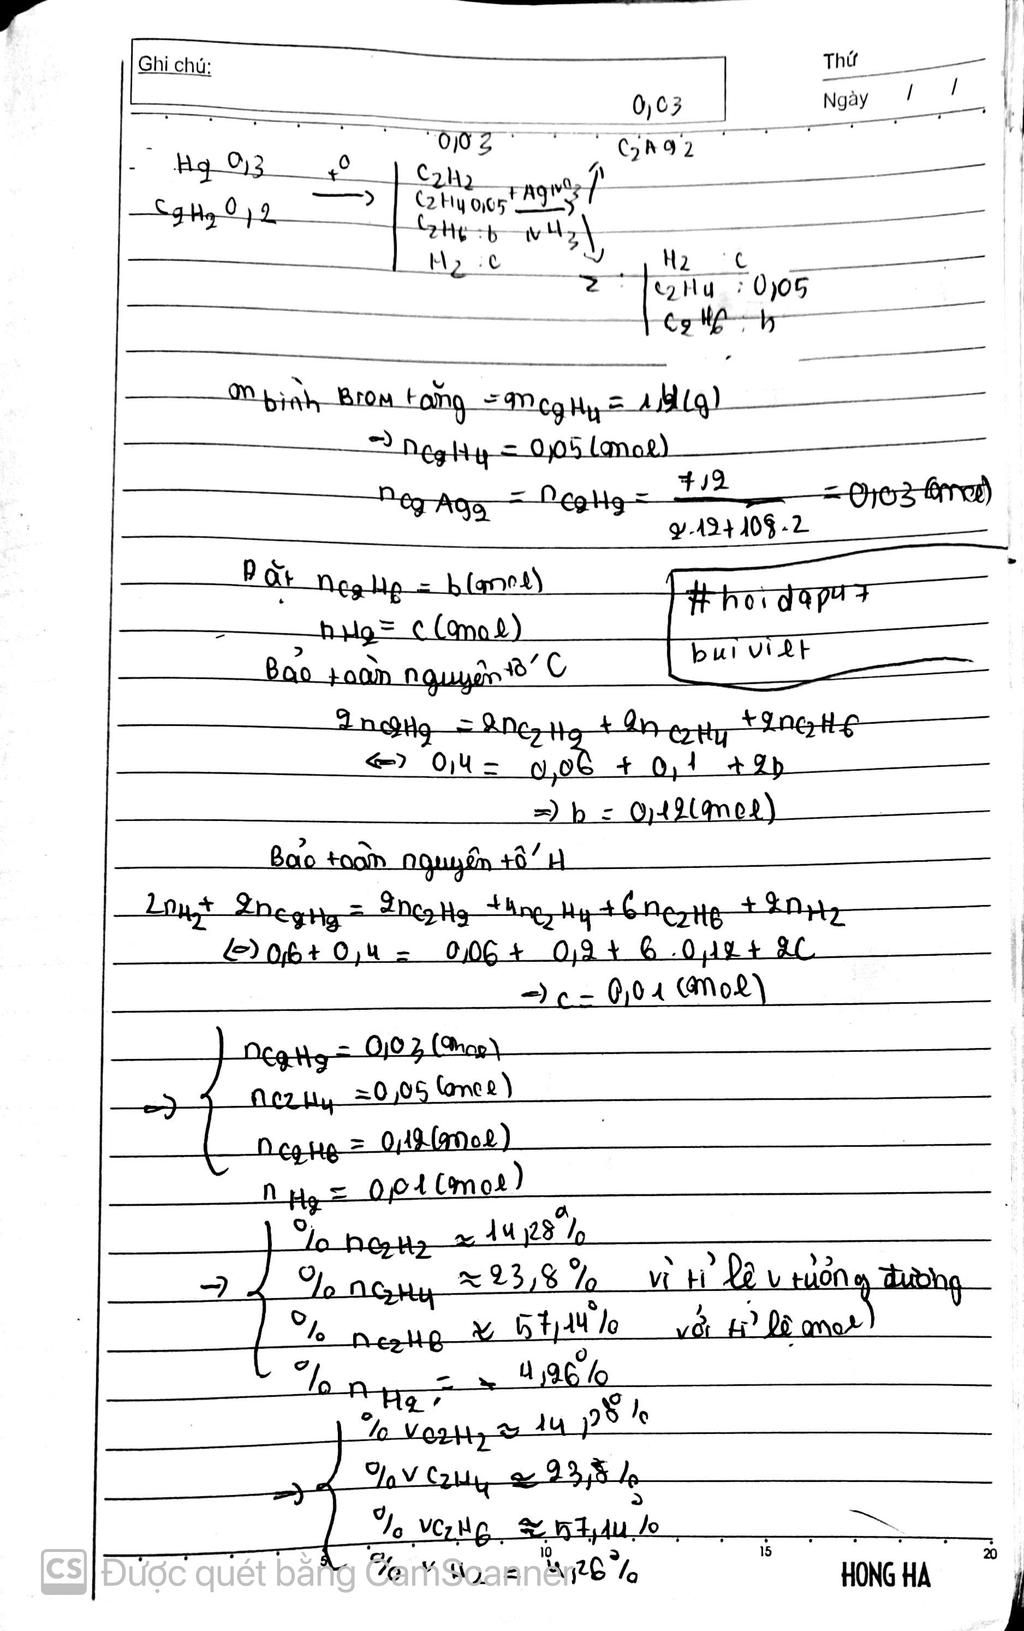 Ghi chú:
Thứ
Ngày / /
0,03
0,03
C2Ag2
H2 0,3
+0
→
C2H2
C2H2 0,2
C2H4 0,05 +AgNO3
C2H6 : b NH3
H2 : c
Z :
H2 c
C2H4 : 0,05
C2H6 : b
m bình Brom tăng = mC2H4 = 1,4(g)
→ nC2H4 = 0,05 (mol)
nC2Ag2 = nC2H2 = 7,2 / 2.12+108.2 = 0,03 (mol)
Đặt nC2H6 = b(mol)
nH2 = c (mol)
#hoidap247
buiviet
Bảo toàn nguyên tố C
2nC2H2 = 2nC2H2 + 2nC2H4 + 2nC2H6
<=> 0,4 = 0,06 + 0,1 + 2b
=> b = 0,12(mol)
Bảo toàn nguyên tố H
2nH2 + 2nC2H2 = 2nC2H2 + 4nC2H4 + 6nC2H6 + 2nH2
<=> 0,6 + 0,4 = 0,06 + 0,2 + 6.0,12 + 2C
→ c = 0,01 (mol)
nC2H2 = 0,03 (mol)
=> nC2H4 = 0,05 (mol)
nC2H6 = 0,12(mol)
nH2 = 0,01 (mol)
% nC2H2 ≈ 14,28%
→ % nC2H4 ≈ 23,8% vì tỉ lệ v tương đương
% nC2H6 ≈ 57,14% với tỉ lệ mol
% nH2 = 4,26%
% vC2H2 ≈ 14,28%
=> % vC2H4 ≈ 23,8%
% vC2H6 ≈ 57,14%
% vH2 = 4,26%
5 10 15 20
CS Được quét bằng CamScanner
HONG HA